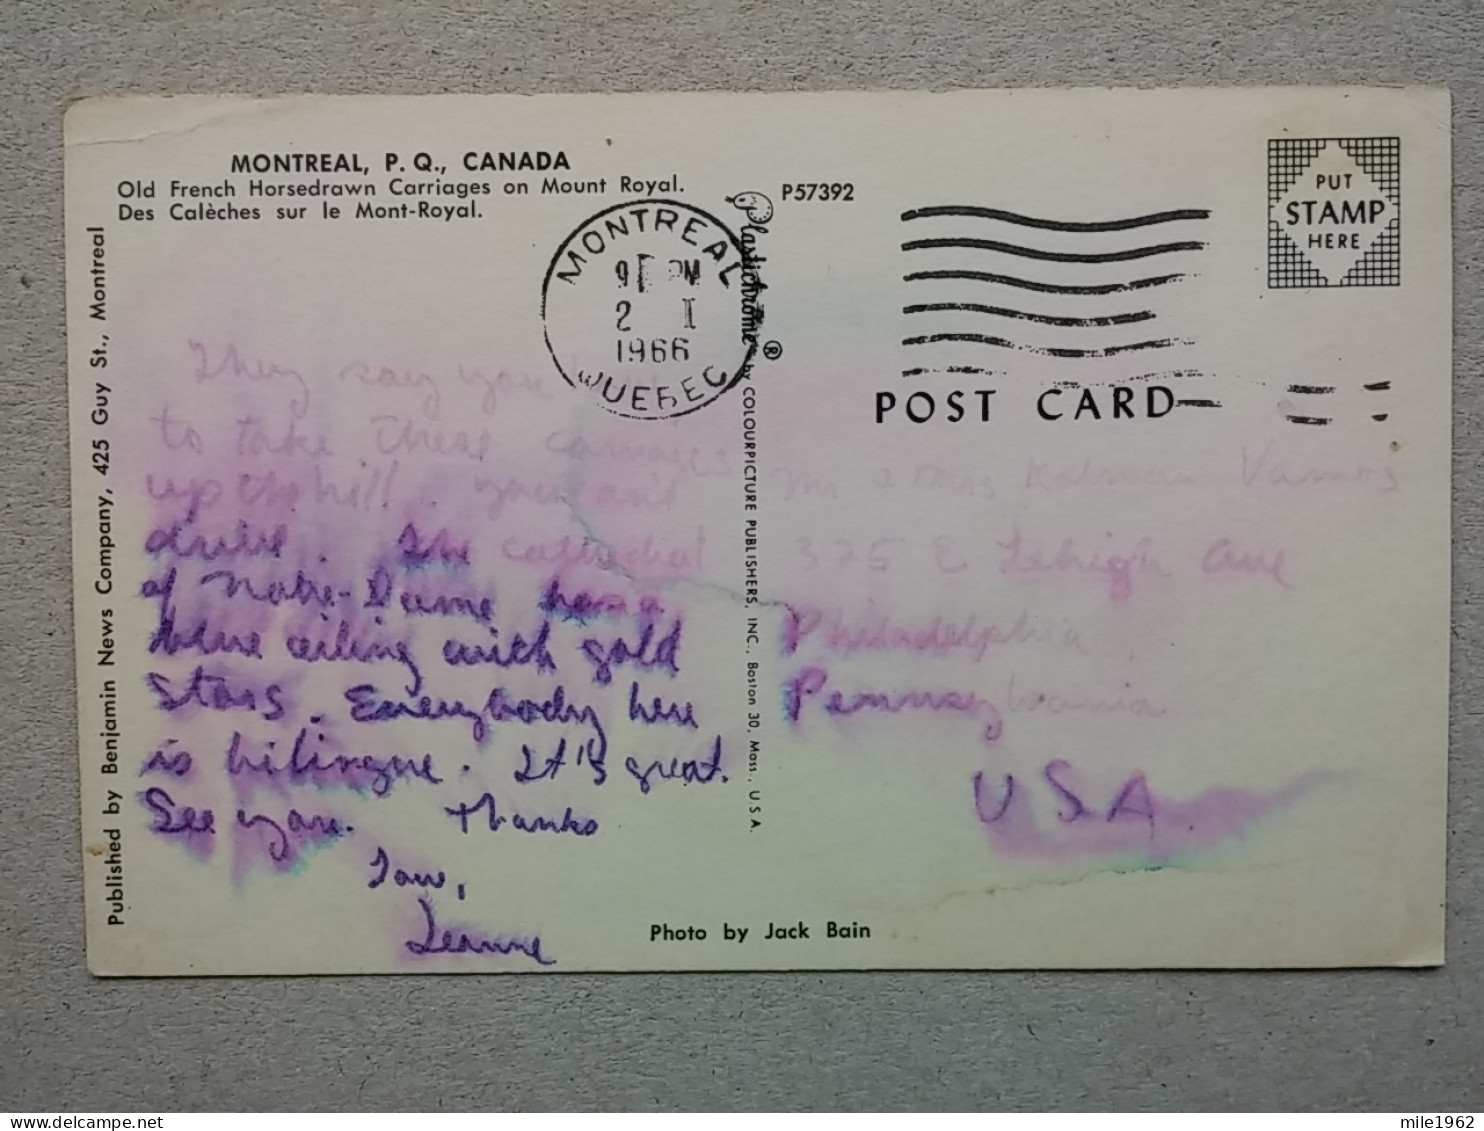 MONTREAL, P. Q., CANADA
Old French Horsedrawn Carriages on Mount Royal.
Des Calèches sur le Mont-Royal.
Published by Benjamin News Company, 425 Guy St., Montreal
They say you
to take these carriages
up the hill. you can't
drive. The cathedral
of Notre-Dame has a
blue ceiling with gold
stars. Everybody here
is bilingue. It's great.
See you. Thanks
Love,
Jeanne
MONTREAL
9 PM
2 I
1966
QUEBEC
Plastichrome ® by COLOURPICTURE PUBLISHERS, INC., Boston 30, Mass., U.S.A.
P57392
PUT
STAMP
HERE
POST CARD
Mr & Mrs Kalman Vamos
375 E Lehigh Ave
Philadelphia
Pennsylvania
USA.
Photo by Jack Bain
mile1962